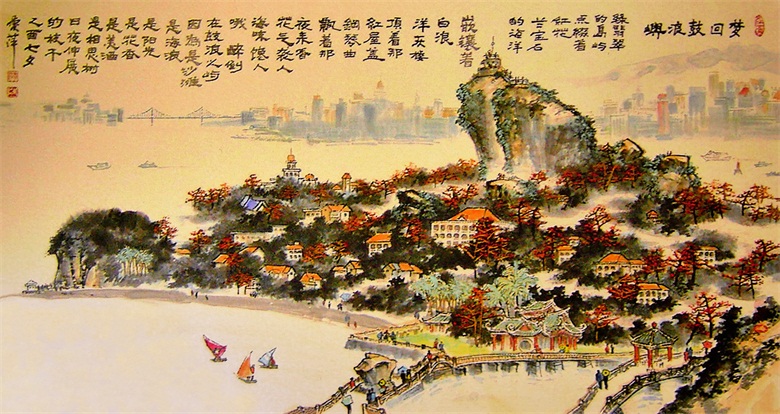 梦回鼓浪嶼
绿翡翠
的島屿
点缀着
红花
兰宝石
的海洋
嵌镶着
白浪
洋灰楼
頂着那
红屋盖
鋼琴曲
散着那
夜来香
花气袭人
海味馋人
哦 醉倒
在鼓浪屿
因為是沙滩
是海浪
是阳光
是花香
是美酒
是相思树
日夜伸展
的枝干
乙酉七夕